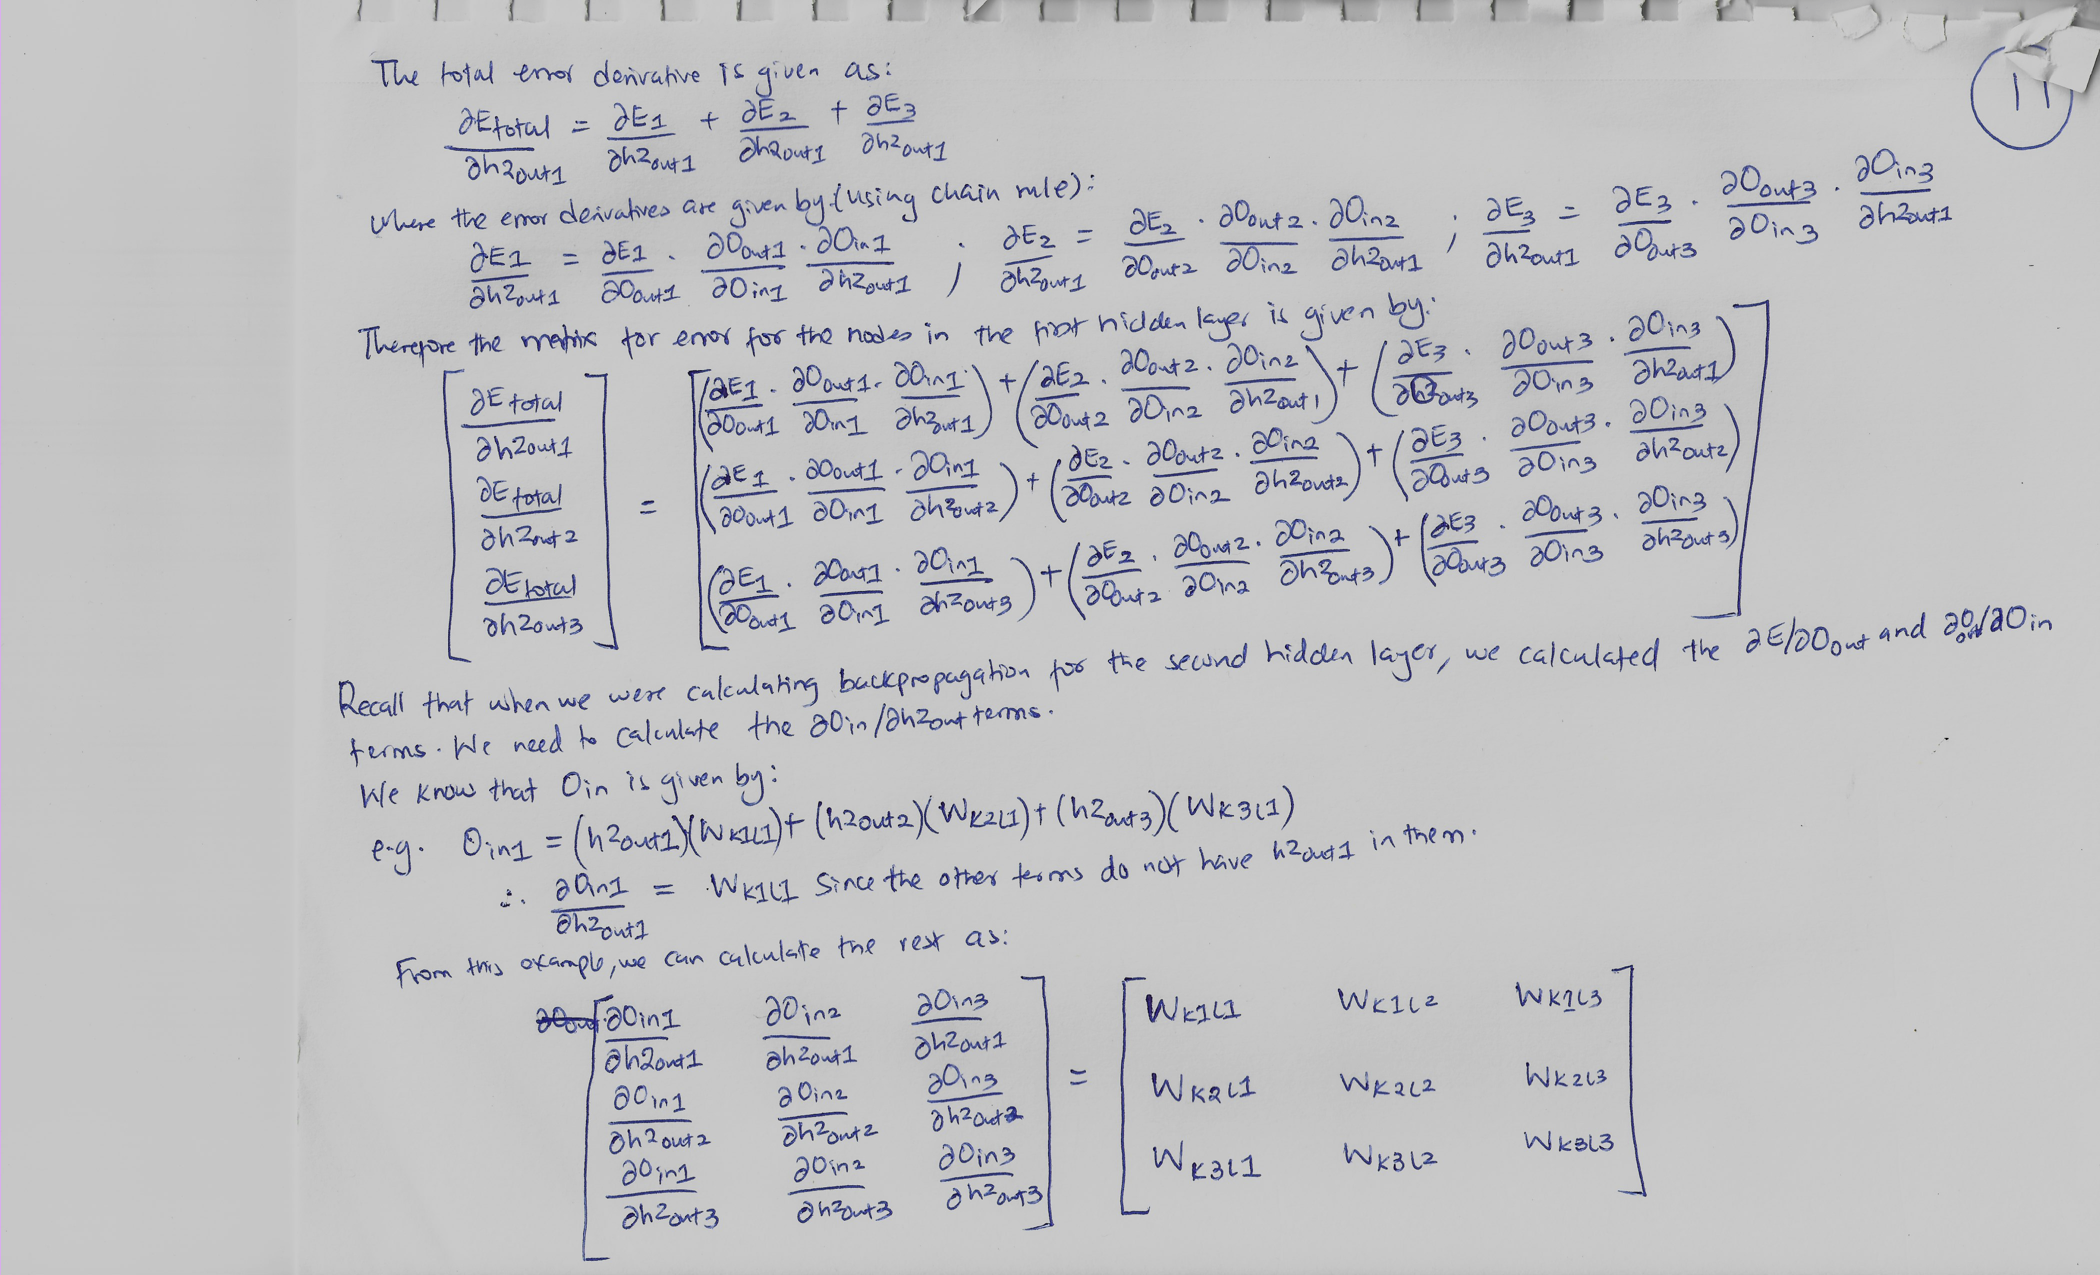 11
The total error derivative is given as:
∂Etotal/∂h2out1 = ∂E1/∂h2out1 + ∂E2/∂h2out1 + ∂E3/∂h2out1
Where the error derivatives are given by (using chain rule):
∂E1/∂h2out1 = ∂E1/∂Oout1 · ∂Oout1/∂Oin1 · ∂Oin1/∂h2out1 ; ∂E2/∂h2out1 = ∂E2/∂Oout2 · ∂Oout2/∂Oin2 · ∂Oin2/∂h2out1 ; ∂E3/∂h2out1 = ∂E3/∂Oout3 · ∂Oout3/∂Oin3 · ∂Oin3/∂h2out1
Therefore the matrix for error for the nodes in the first hidden layer is given by:
[∂Etotal/∂h2out1] = [(∂E1/∂Oout1 · ∂Oout1/∂Oin1 · ∂Oin1/∂h2out1) + (∂E2/∂Oout2 · ∂Oout2/∂Oin2 · ∂Oin2/∂h2out1) + (∂E3/∂Oout3 · ∂Oout3/∂Oin3 · ∂Oin3/∂h2out1)]
[∂Etotal/∂h2out2] = [(∂E1/∂Oout1 · ∂Oout1/∂Oin1 · ∂Oin1/∂h2out2) + (∂E2/∂Oout2 · ∂Oout2/∂Oin2 · ∂Oin2/∂h2out2) + (∂E3/∂Oout3 · ∂Oout3/∂Oin3 · ∂Oin3/∂h2out2)]
[∂Etotal/∂h2out3] = [(∂E1/∂Oout1 · ∂Oout1/∂Oin1 · ∂Oin1/∂h2out3) + (∂E2/∂Oout2 · ∂Oout2/∂Oin2 · ∂Oin2/∂h2out3) + (∂E3/∂Oout3 · ∂Oout3/∂Oin3 · ∂Oin3/∂h2out3)]
Recall that when we were calculating backpropagation for the second hidden layer, we calculated the ∂E/∂Oout and ∂Oout/∂Oin
terms. We need to calculate the ∂Oin/∂h2out terms.
We know that Oin is given by:
e.g. Oin1 = (h2out1)(WK1L1) + (h2out2)(WK2L1) + (h2out3)(WK3L1)
∴ ∂Oin1/∂h2out1 = WK1L1 Since the other terms do not have h2out1 in them.
From this example, we can calculate the rest as:
[∂Oin1/∂h2out1 ∂Oin2/∂h2out1 ∂Oin3/∂h2out1] = [WK1L1 WK1L2 WK1L3]
[∂Oin1/∂h2out2 ∂Oin2/∂h2out2 ∂Oin3/∂h2out2] = [WK2L1 WK2L2 WK2L3]
[∂Oin1/∂h2out3 ∂Oin2/∂h2out3 ∂Oin3/∂h2out3] = [WK3L1 WK3L2 WK3L3]